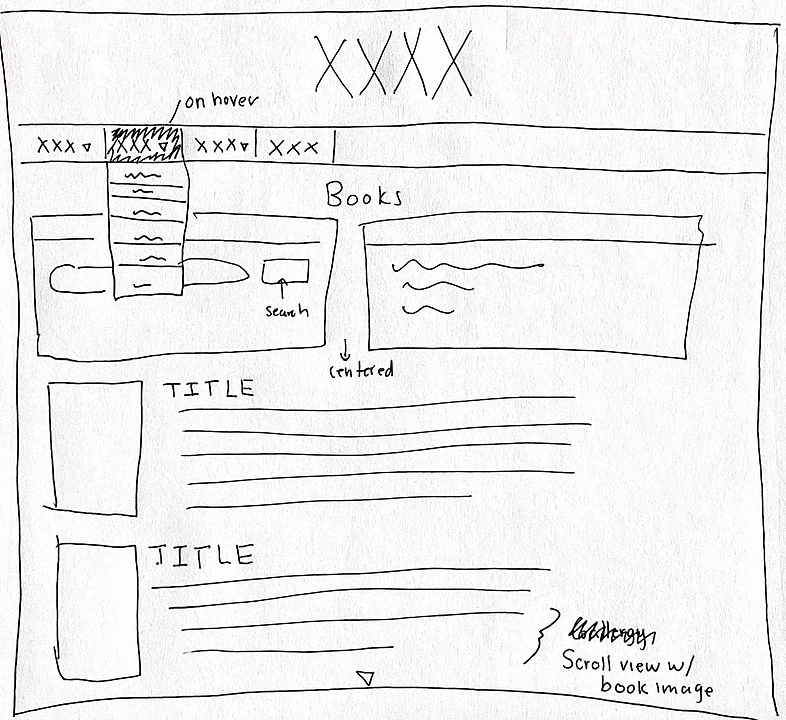 XXXX
on hover
XXX XXX XXX XXX
Books
search
centered
TITLE
TITLE
Scroll view w/
book image